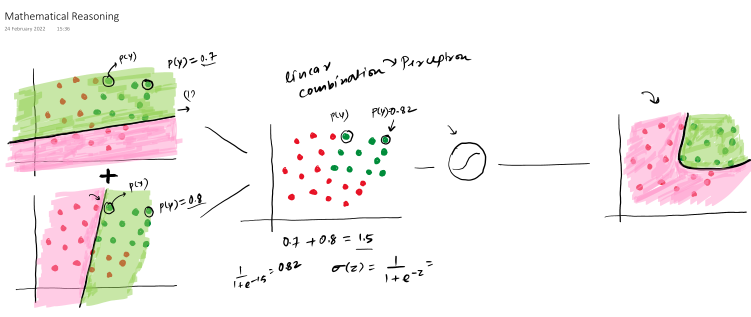 Mathematical Reasoning
24 February 2022 15:36
P(Y)
P(Y) = 0.7
(1)
+
P(Y)
P(Y) = 0.8
linear
combination → Perceptron
P(Y)
P(Y)=0.82
0.7 + 0.8 = 1.5
1/1+e^-1.5 = 0.82
σ(z) = 1/1+e^-z =